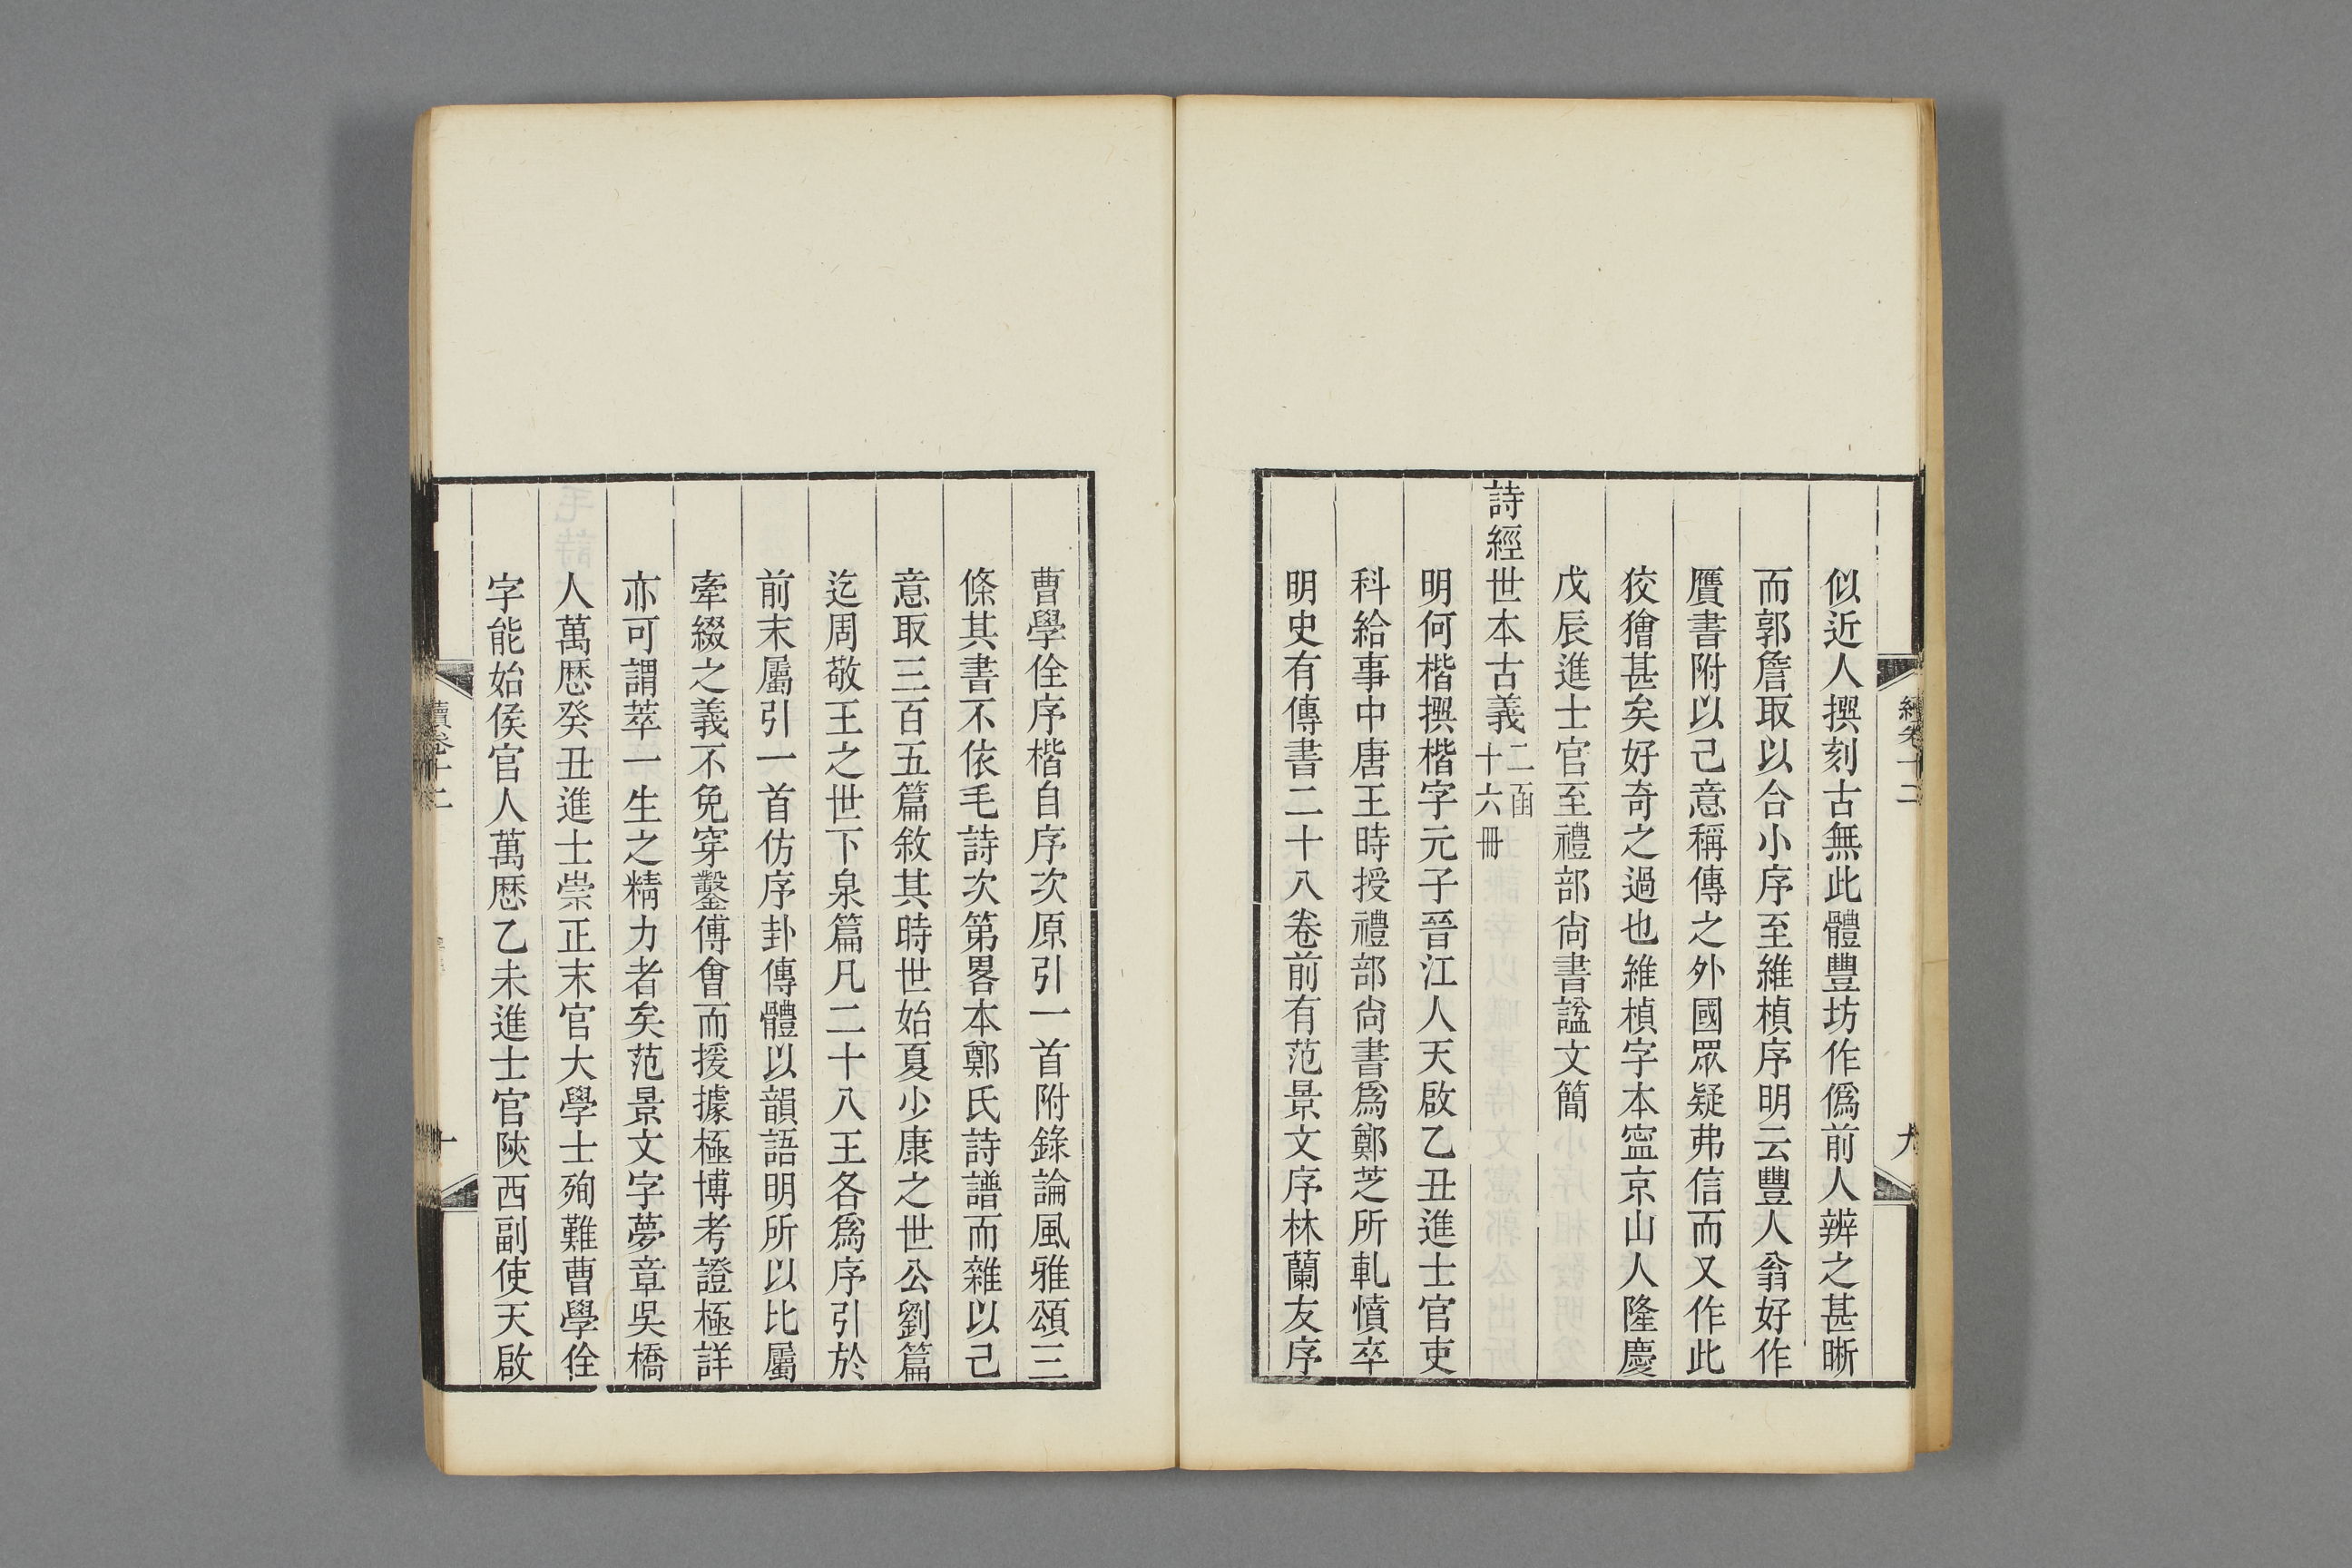 似近人撰刻古無此體豐坊作僞前人辨之甚晰
而郭詹取以合小序至維楨序明云豐人翁好作
贋書附以己意稱傳之外國眾疑弗信而又作此
狡獪甚矣好奇之過也維楨字本寍京山人隆慶
戊辰進士官至禮部尙書諡文簡
詩經世本古義二函
十六冊
明何楷撰楷字元子晉江人天啟乙丑進士官吏
科給事中唐王時授禮部尙書爲鄭芝所軋憤卒
明史有傳書二十八卷前有范景文序林蘭友序
曹學佺序楷自序次原引一首附錄論風雅頌三
條其書不依毛詩次第畧本鄭氏詩譜而雜以己
意取三百五篇敘其時世始夏少康之世公劉篇
迄周敬王之世下泉篇凡二十八王各爲序引於
前末屬引一首仿序卦傳體以韻語明所以比屬
牽綴之義不免穿鑿傅會而援據極博考證極詳
亦可謂萃一生之精力者矣范景文字夢章吳橋
人萬厯癸丑進士崇正末官大學士殉難曹學佺
字能始侯官人萬厯乙未進士官陝西副使天啟
續卷十二
十